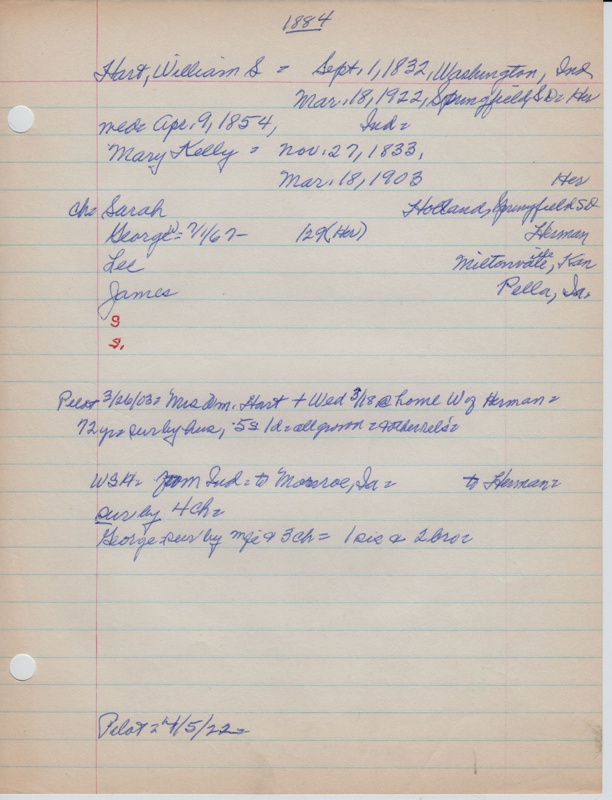 1884
Hart, William S = Sept. 1, 1832, Washington, Ind
Mar. 18, 1922, Springfield SD = Her
med = Apr. 9, 1854, Ind =
Mary Kelly = Nov. 27, 1833,
Mar. 18, 1903 Her
Ch = Sarah Holland, Springfield SD
George = 129 (Her) Herman
Lee Miltonvale, Kan
James Pella, Ia.
9
s.
Pilot 3/26/03 = Mrs Wm. Hart + Wed 3/18 @ home W of Herman =
72 yr = sur by hus, 5s 1d = all grown =
WSH = from Ind = to Monroe, Ia = to Herman =
sur by 4 ch =
George = sur by & 3 ch = 1 sis & 2 bro =
Pilot = 4/5/22 =